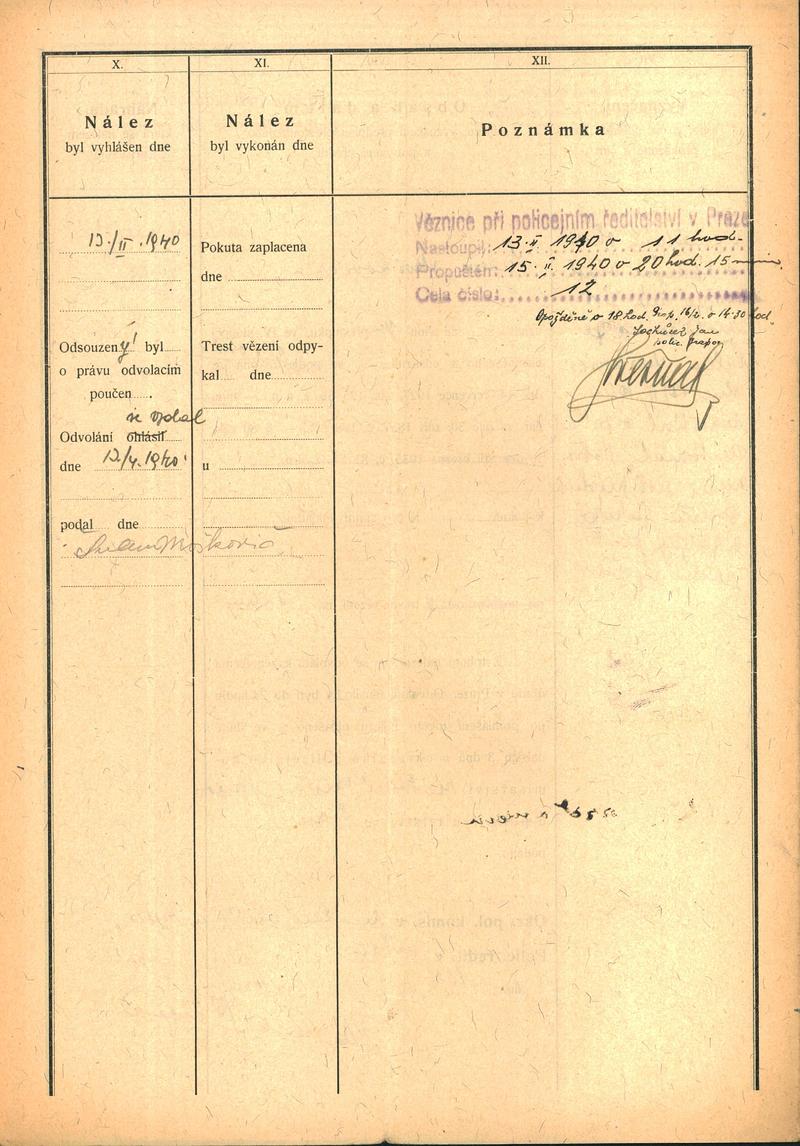 X.
Nález
byl vyhlášen dne
13./II. 1940
Odsouzený byl
o právu odvolacím
poučen
se vzdal
Odvolání ohlásil
dne 13/4. 1940
podal dne
Moškovič
XI.
Nález
byl vykonán dne
Pokuta zaplacena
dne
Trest vězení odpy-
kal dne
u
XII.
Poznámka
Věznice při policejním ředitelství v Praze
Nastoupil: 13. II. 1940 o 11 hod.
Propuštěn: 15. II. 1940 o 20 hod. 15 min.
Cela číslo: 12
Opožděně o 18 hod. 16/2. o 14.30 hod
Jan